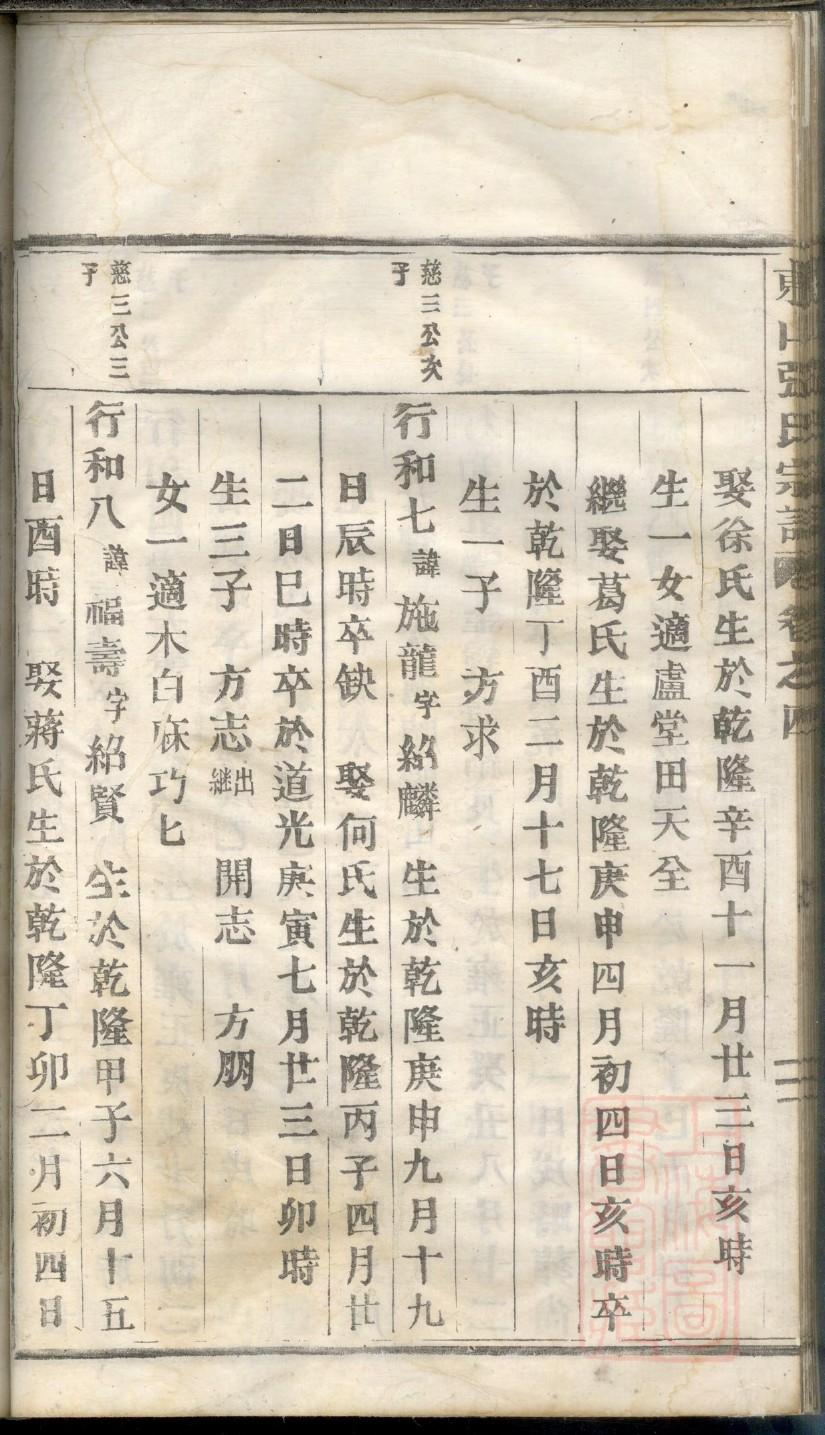 東山張氏宗譜 卷之四
娶徐氏生於乾隆辛酉十一月廿三日亥時
生一女適盧堂田天全
繼娶葛氏生於乾隆庚申四月初四日亥時卒
於乾隆丁酉二月十七日亥時
生一子 方求
慈三公次子
行和七諱施龍字紹麟 生於乾隆庚申九月十九
日辰時卒缺 娶何氏生於乾隆丙子四月廿
二日巳時卒於道光庚寅七月廿三日卯時
生三子 方志出繼 開志 方朋
女一適木白庥巧匕
慈三公三子
行和八諱福壽字紹賢 生於乾隆甲子六月十五
日酉時 娶蔣氏生於乾隆丁卯二月初四日